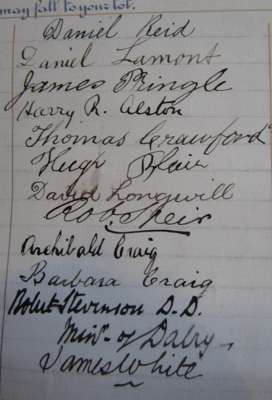 may fall to your lot.
Daniel Reid
Daniel Lamont
James Pringle
Harry R. Alston
Thomas Crawford
Hugh Blair
David Longwill
Robt Speir
Archibald Craig
Barbara Craig
Robert Stevenson D.D.
Minr. of Dalry
James White